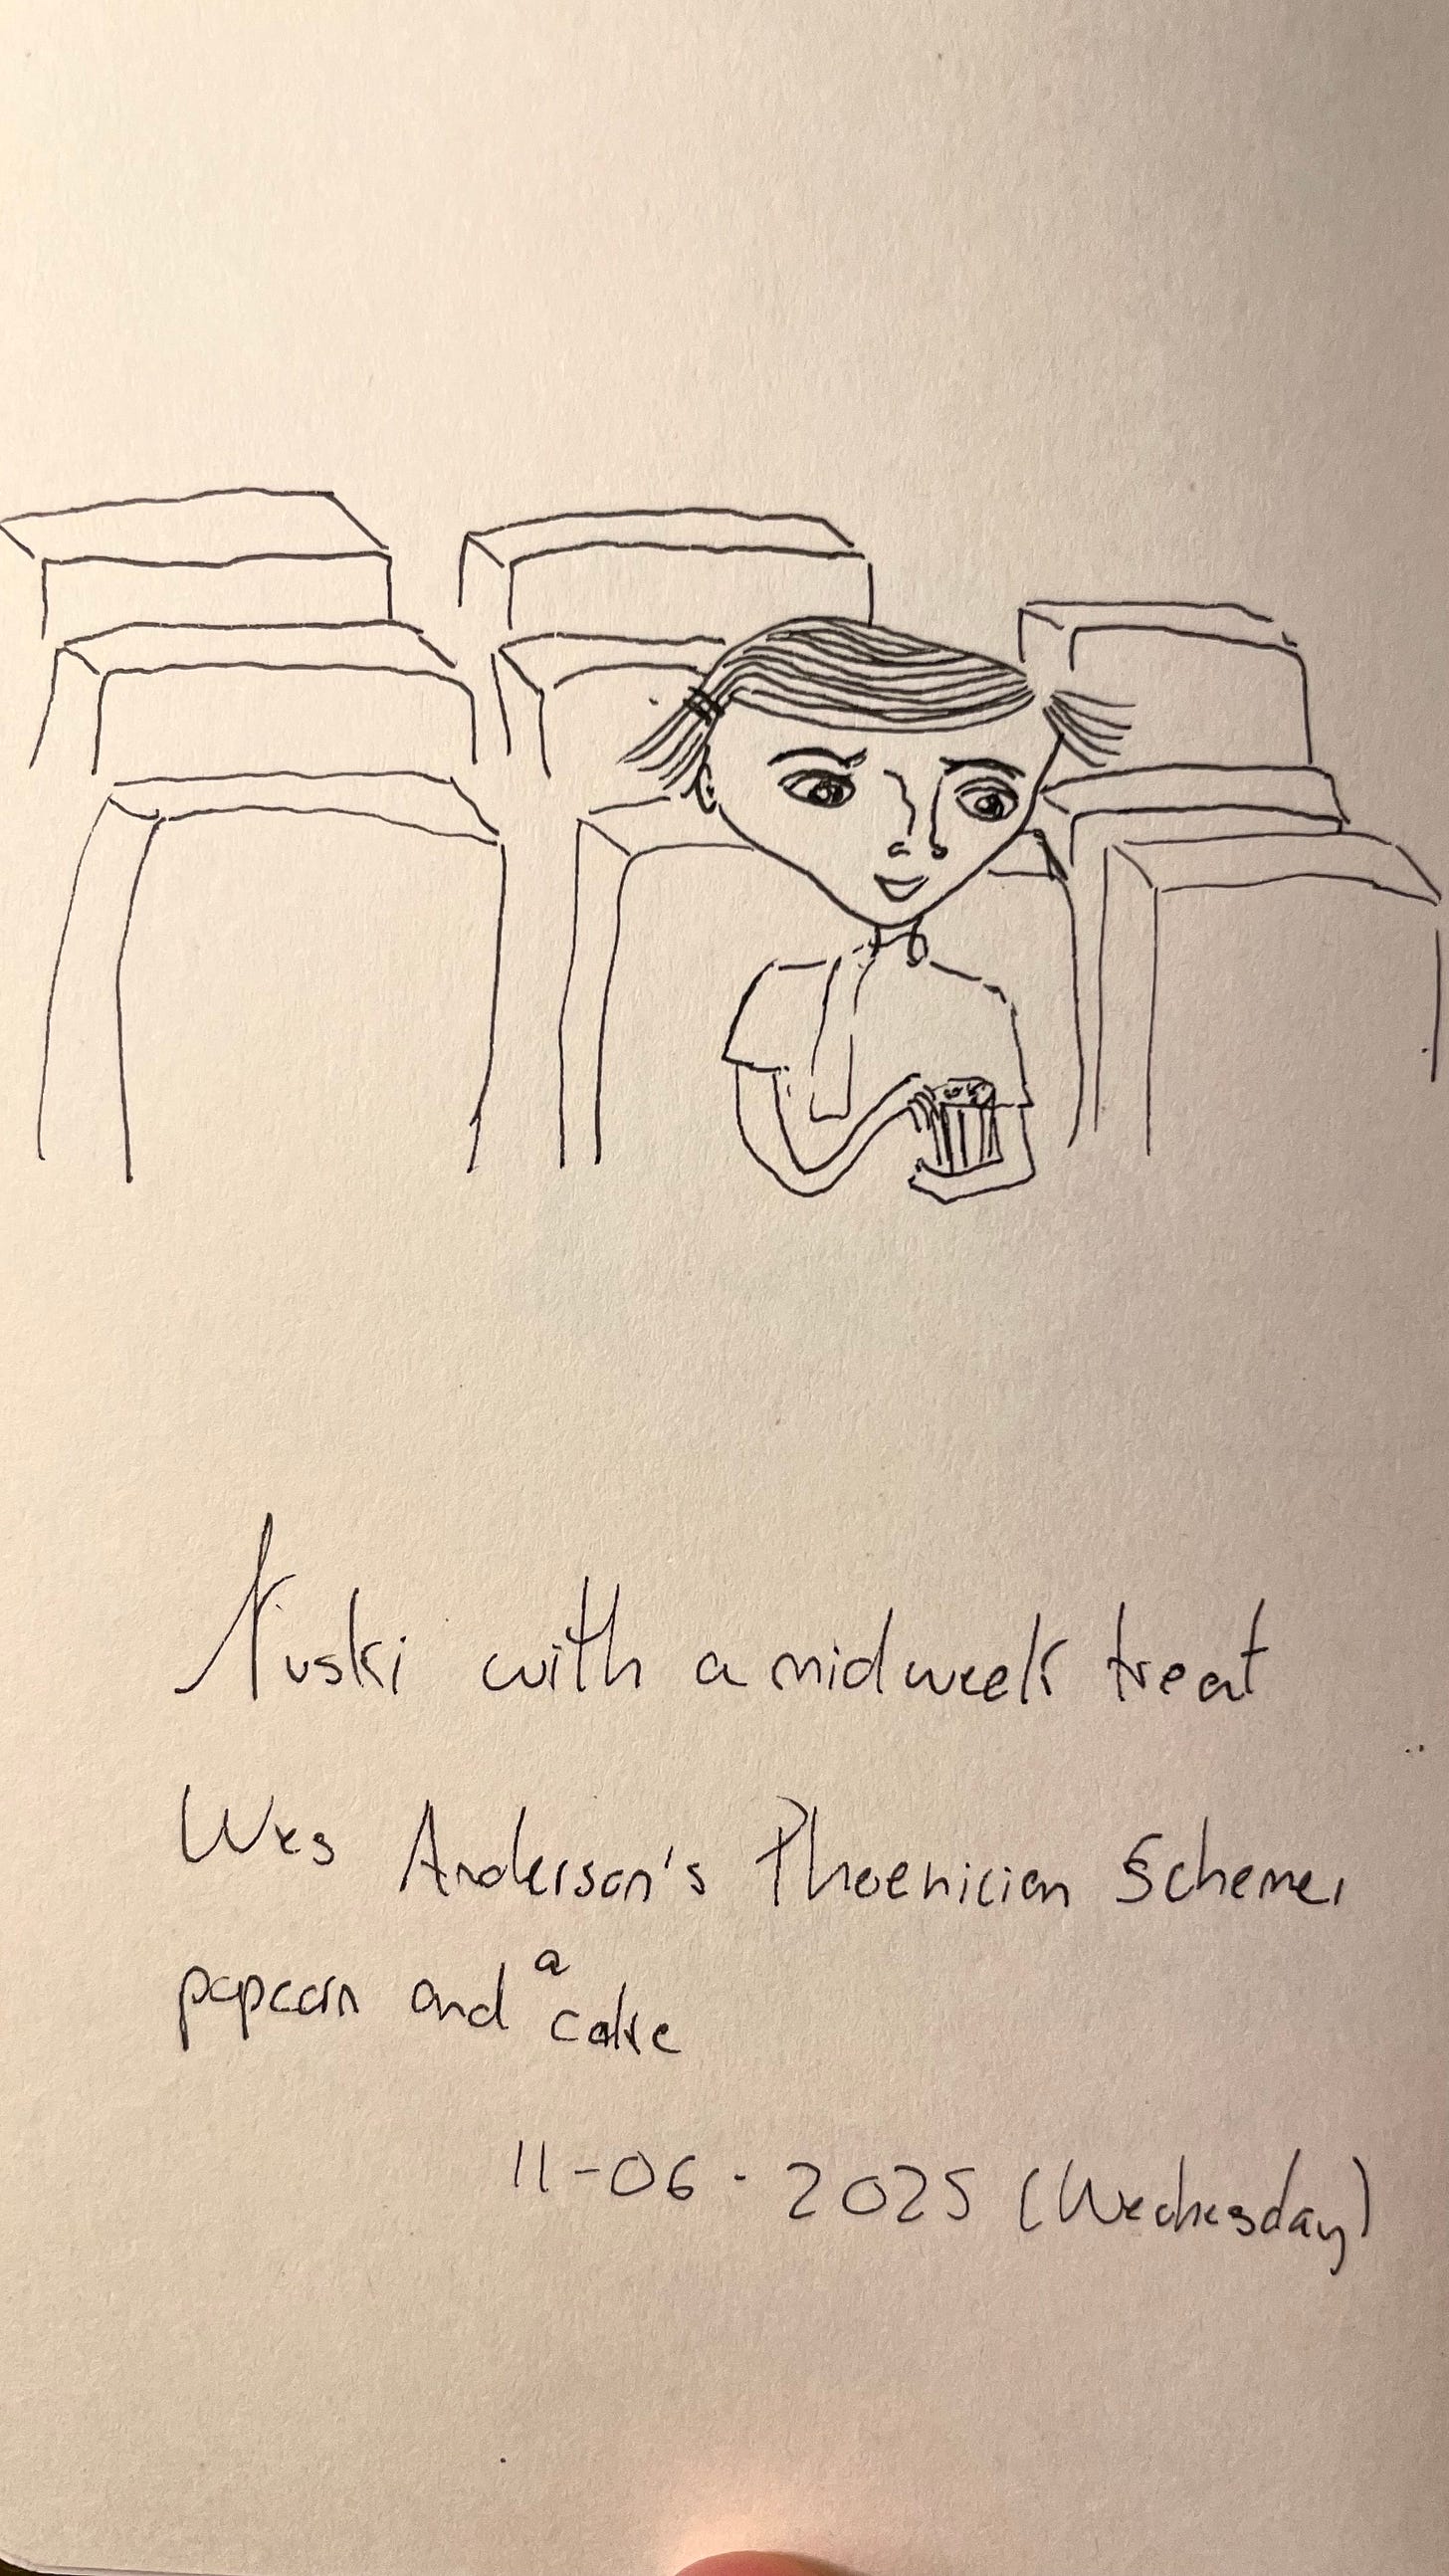 Nuski with a midweek treat
Wes Anderson's Phoenician Scheme,
popcorn and a cake
11-06-2025 (Wednesday)